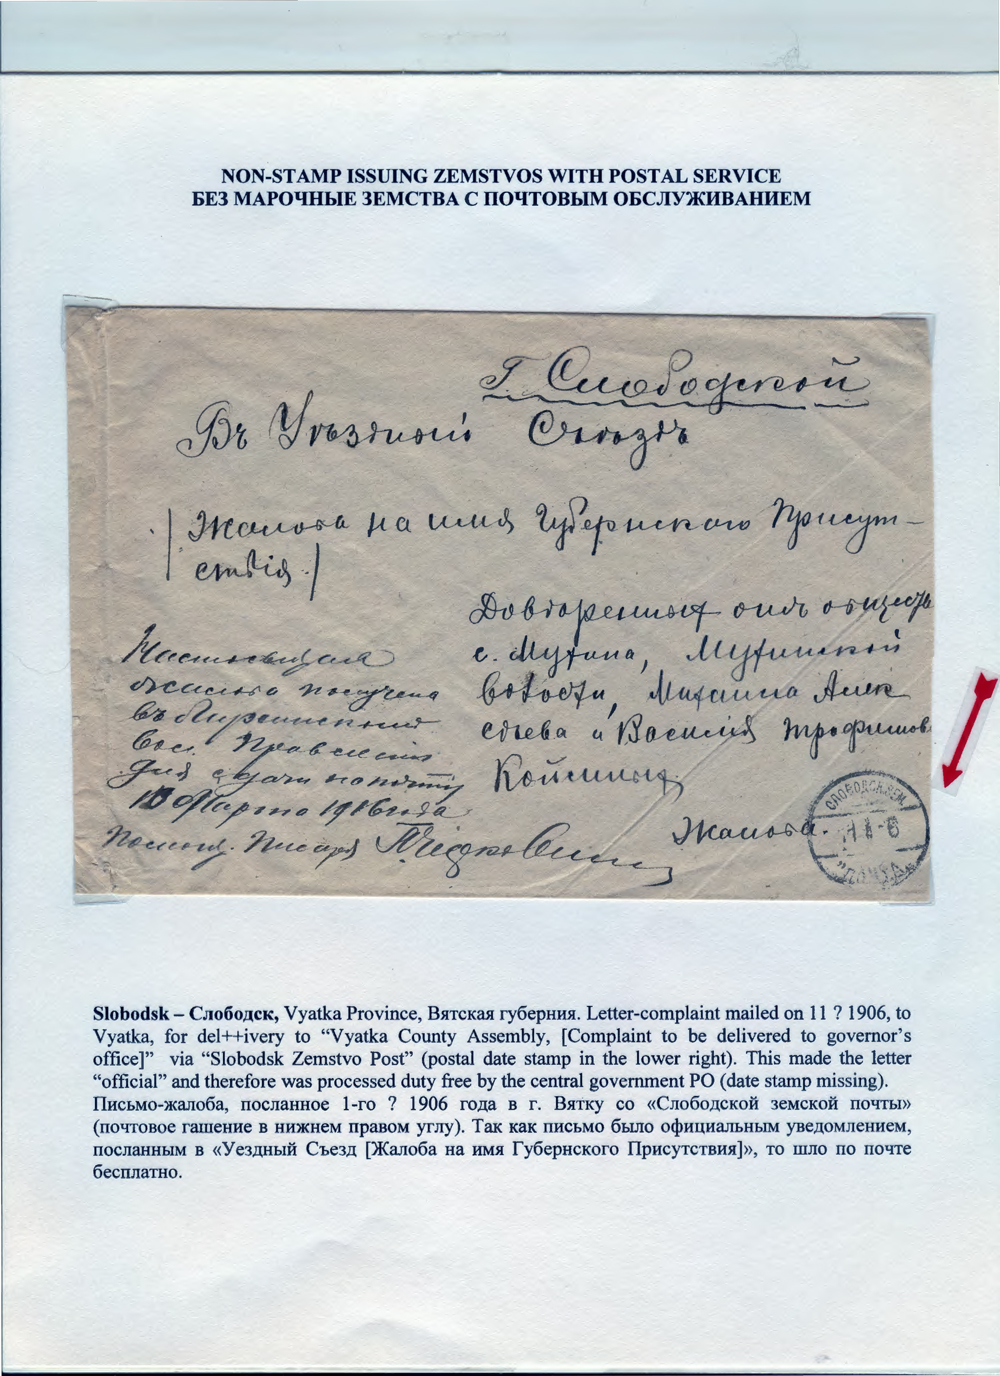 NON-STAMP ISSUING ZEMSTVOS WITH POSTAL SERVICE
БЕЗ МАРОЧНЫЕ ЗЕМСТВА С ПОЧТОВЫМ ОБСЛУЖИВАНИЕМ
Г. Слободской
Въ Уѣздный Съѣздъ
Жалоба на имя Губернскаго Присут-
ствія.
Довѣренныхъ отъ обществ
с. Мутина, Мутинской
волости, Михаила Алек
сѣева и Василія Трофимов
Койсиныхъ
Жалоба.
Настоящая
жалоба получена
въ
Вол. Правленіи
для сдачи на почту
10 Марта 1906 года
Помощ. Писаря
СЛОБОДСК. ЗЕМ.
"ПОЧТА"
Slobodsk – Слободск, Vyatka Province, Вятская губерния. Letter-complaint mailed on 11 ? 1906, to
Vyatka, for del++ivery to “Vyatka County Assembly, [Complaint to be delivered to governor’s
office]” via “Slobodsk Zemstvo Post” (postal date stamp in the lower right). This made the letter
“official” and therefore was processed duty free by the central government PO (date stamp missing).
Письмо-жалоба, посланное 1-го ? 1906 года в г. Вятку со «Слободской земской почты»
(почтовое гашение в нижнем правом углу). Так как письмо было официальным уведомлением,
посланным в «Уездный Съезд [Жалоба на имя Губернского Присутствия]», то шло по почте
бесплатно.